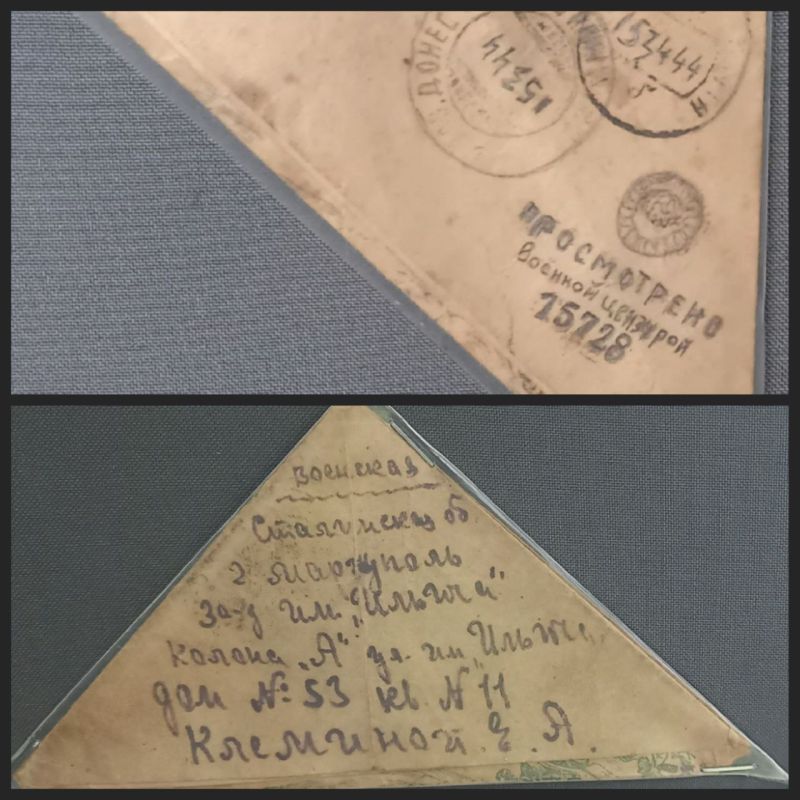 ДОНЕС
15344
153444
ПРОСМОТРЕНО
Военной цензурой
15728
Военская
Сталинская об
г Мариуполь
За-д им. „Ильича"
Колона „А" ул. им „Ильича
дом № 53 кв. N 11
Клеминой. Е. А.